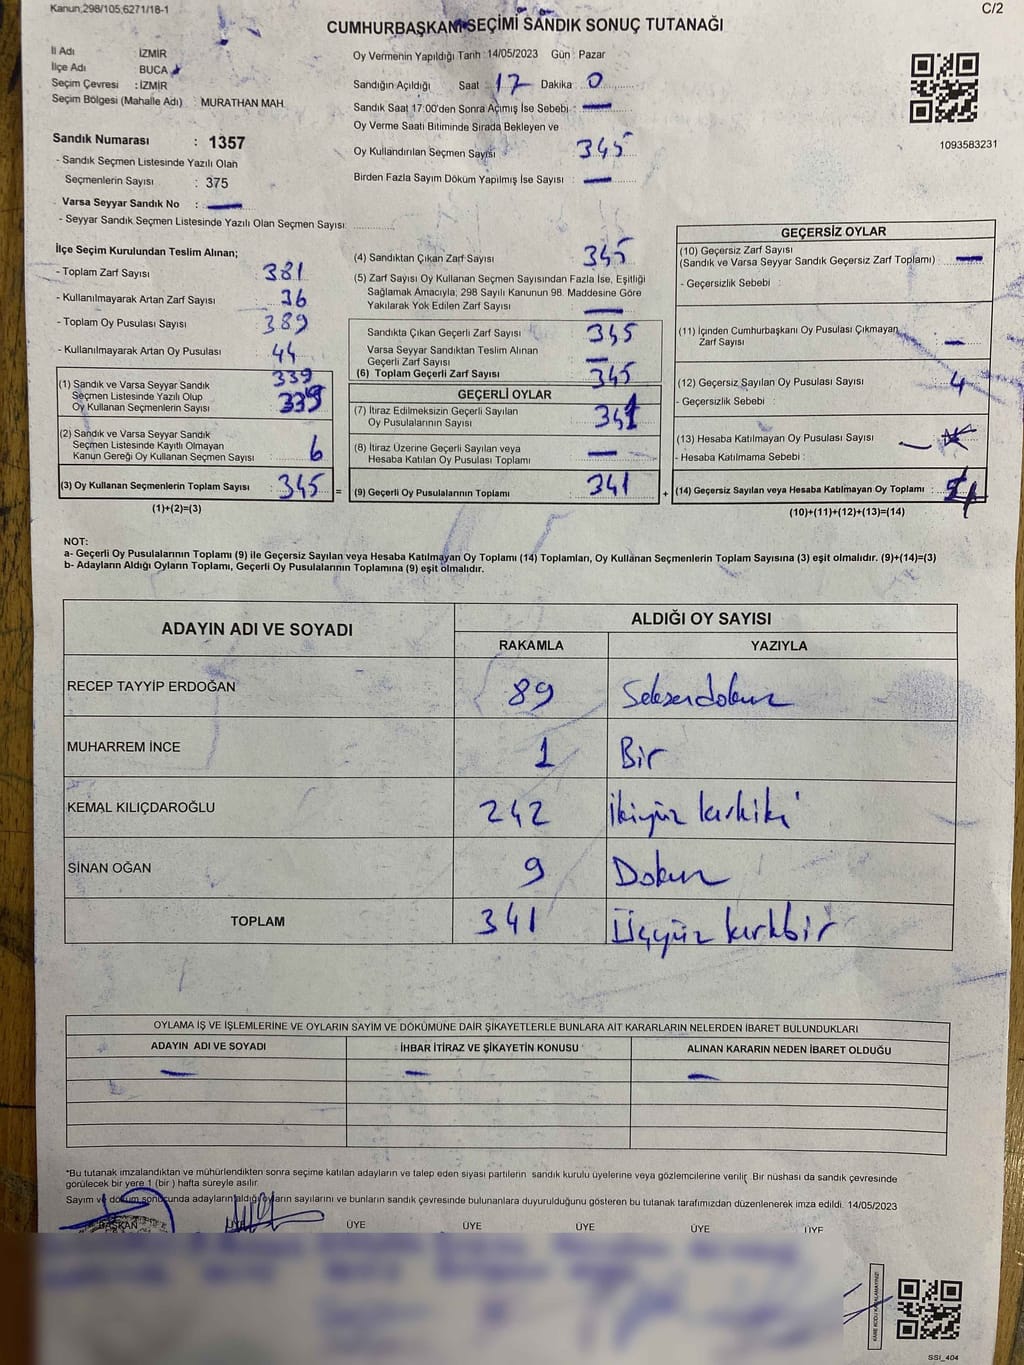 Kanun;298/105,6271/18-1
C/2
CUMHURBAŞKANI SEÇİMİ SANDIK SONUÇ TUTANAĞI
İl Adı İZMİR
İlçe Adı BUCA
Seçim Çevresi : İZMİR
Seçim Bölgesi (Mahalle Adı) MURATHAN MAH.
Oy Vermenin Yapıldığı Tarih :14/05/2023 Gün : Pazar
Sandığın Açıldığı Saat 17 Dakika : 0
Sandık Saat 17:00'den Sonra Açımış İse Sebebi : —
Oy Verme Saati Bitiminde Sırada Bekleyen ve
Oy Kullandırılan Seçmen Sayısı 345
Birden Fazla Sayım Döküm Yapılmış İse Sayısı : —
1093583231
Sandık Numarası : 1357
- Sandık Seçmen Listesinde Yazılı Olan
Seçmenlerin Sayısı : 375
Varsa Seyyar Sandık No : —
- Seyyar Sandık Seçmen Listesinde Yazılı Olan Seçmen Sayısı:
İlçe Seçim Kurulundan Teslim Alınan;
- Toplam Zarf Sayısı 381
- Kullanılmayarak Artan Zarf Sayısı : 36
- Toplam Oy Pusulası Sayısı : 389
- Kullanılmayarak Artan Oy Pusulası : 44
339
(1) Sandık ve Varsa Seyyar Sandık
Seçmen Listesinde Yazılı Olup
Oy Kullanan Seçmenlerin Sayısı : 339
(2) Sandık ve Varsa Seyyar Sandık
Seçmen Listesinde Kayıtlı Olmayan
Kanun Gereği Oy Kullanan Seçmen Sayısı : 6
(3) Oy Kullanan Seçmenlerin Toplam Sayısı : 345 =
(1)+(2)=(3)
(4) Sandıktan Çıkan Zarf Sayısı : 345
(5) Zarf Sayısı Oy Kullanan Seçmen Sayısından Fazla İse, Eşitliği
Sağlamak Amacıyla; 298 Sayılı Kanunun 98. Maddesine Göre
Yakılarak Yok Edilen Zarf Sayısı : —
Sandıkta Çıkan Geçerli Zarf Sayısı : 345
Varsa Seyyar Sandıktan Teslim Alınan
Geçerli Zarf Sayısı : —
(6) Toplam Geçerli Zarf Sayısı : 345
GEÇERLİ OYLAR
(7) İtiraz Edilmeksizin Geçerli Sayılan
Oy Pusulalarının Sayısı : 341
(8) İtiraz Üzerine Geçerli Sayılan veya
Hesaba Katılan Oy Pusulası Toplamı : —
(9) Geçerli Oy Pusulalarının Toplamı : 341 +
GEÇERSİZ OYLAR
(10) Geçersiz Zarf Sayısı
(Sandık ve Varsa Seyyar Sandık Geçersiz Zarf Toplamı) : —
- Geçersizlik Sebebi :
(11) İçinden Cumhurbaşkanı Oy Pusulası Çıkmayan
Zarf Sayısı : —
(12) Geçersiz Sayılan Oy Pusulası Sayısı : 4
- Geçersizlik Sebebi :
(13) Hesaba Katılmayan Oy Pusulası Sayısı : —
- Hesaba Katılmama Sebebi :
(14) Geçersiz Sayılan veya Hesaba Katılmayan Oy Toplamı :
(10)+(11)+(12)+(13)=(14)
NOT:
a- Geçerli Oy Pusulalarının Toplamı (9) ile Geçersiz Sayılan veya Hesaba Katılmayan Oy Toplamı (14) Toplamları, Oy Kullanan Seçmenlerin Toplam Sayısına (3) eşit olmalıdır. (9)+(14)=(3)
b- Adayların Aldığı Oyların Toplamı, Geçerli Oy Pusulalarının Toplamına (9) eşit olmalıdır.
ADAYIN ADI VE SOYADI ALDIĞI OY SAYISI
RAKAMLA YAZIYLA
RECEP TAYYİP ERDOĞAN 89 Seksendokuz
MUHARREM İNCE 1 Bir
KEMAL KILIÇDAROĞLU 242 İkiyüz kırkiki
SİNAN OĞAN 9 Dokuz
TOPLAM 341 Üçyüz kırkbir
OYLAMA İŞ VE İŞLEMLERİNE VE OYLARIN SAYIM VE DÖKÜMÜNE DAİR ŞİKAYETLERLE BUNLARA AİT KARARLARIN NELERDEN İBARET BULUNDUKLARI
ADAYIN ADI VE SOYADI İHBAR İTİRAZ VE ŞİKAYETİN KONUSU ALINAN KARARIN NEDEN İBARET OLDUĞU
— — —
*Bu tutanak imzalandıktan ve mühürlendikten sonra seçime katılan adayların ve talep eden siyasi partilerin sandık kurulu üyelerine veya gözlemcilerine verilir. Bir nüshası da sandık çevresinde
görülecek bir yere 1 (bir ) hafta süreyle asılır.
Sayım ve döküm sonucunda adayların aldığı oyların sayılarını ve bunların sandık çevresinde bulunanlara duyurulduğunu gösteren bu tutanak tarafımızdan düzenlenerek imza edildi. 14/05/2023
BAŞKAN ÜYE ÜYE ÜYE ÜYE ÜYE ÜYE
SSI_404